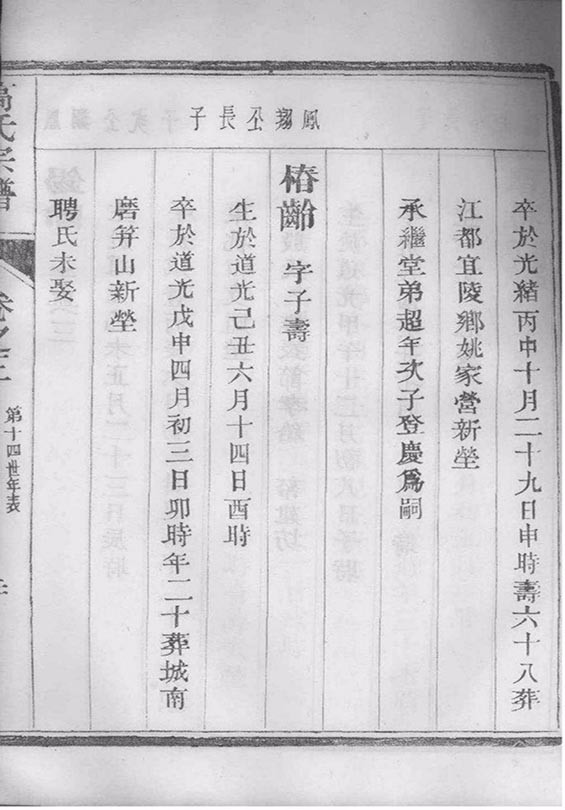 鳳翔公長子
卒於光緒丙申十月二十九日申時壽六十八葬
江都宜陵鄉姚家營新塋
承繼堂弟超年次子登慶爲嗣
椿齡 字子壽
生於道光己丑六月十四日酉時
卒於道光戊申四月初三日卯時年二十葬城南
磨笄山新塋
聘氏未娶
氏宗譜
卷之二
第十四世年表